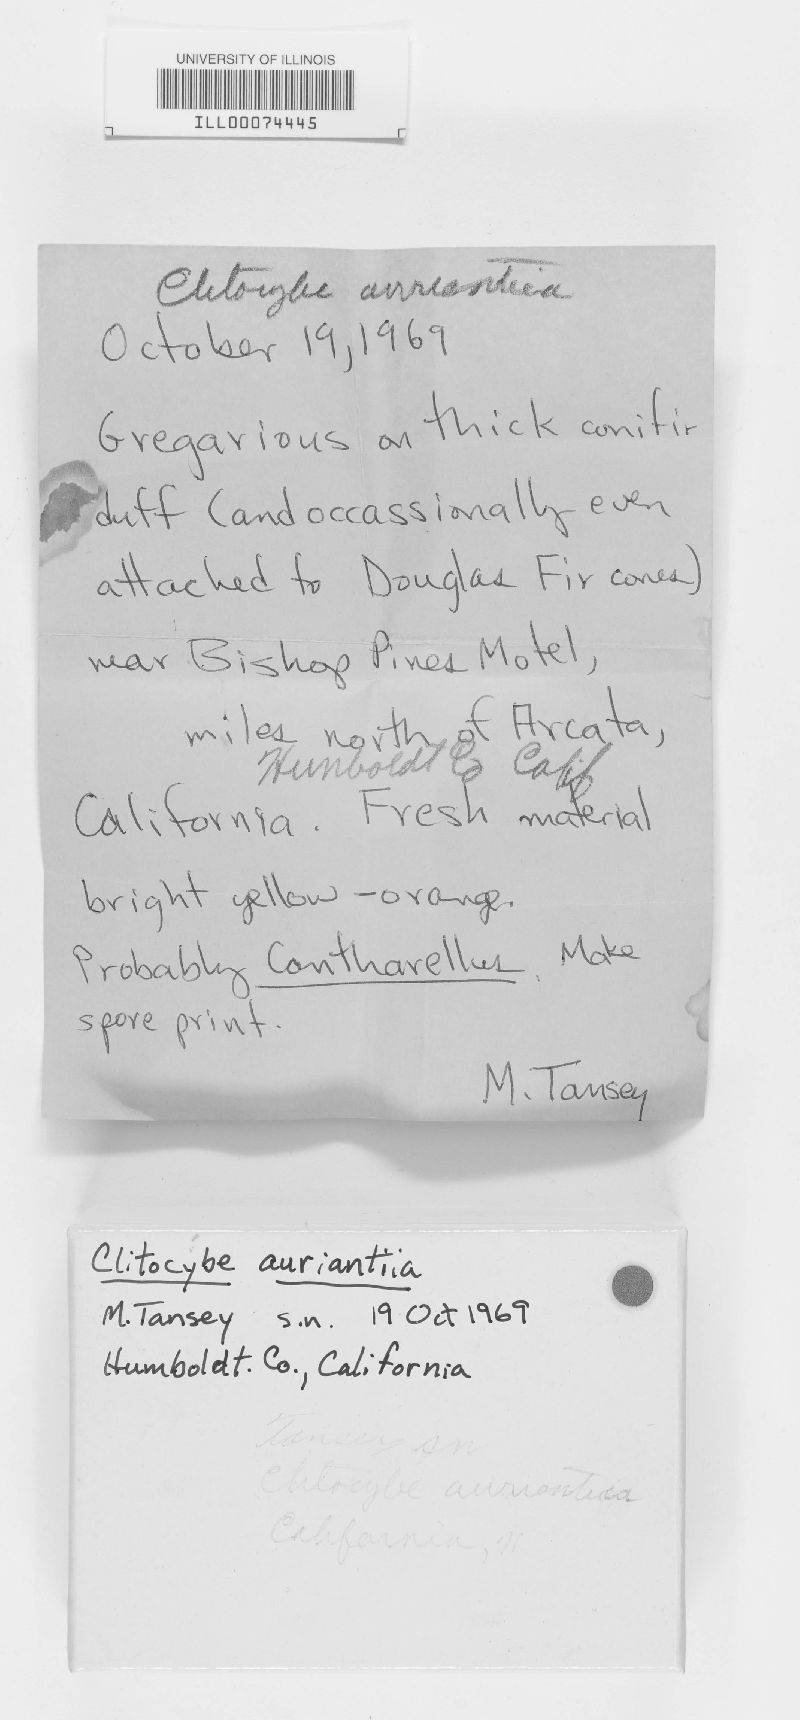 UNIVERSITY OF ILLINOIS
ILL00074445
Clitocybe aurriantiia
October 19, 1969
Gregarious on thick conifir
duff (and occassionally even
attached to Douglas Fir cones)
near Bishop Pines Motel,
miles north of Arcata,
Humboldt Co Calif
California. Fresh material
bright yellow-orange.
Probably Cantharellus. Make
spore print.
M. Tansey
Clitocybe auriantiia
M. Tansey s.n. 19 Oct 1969
Humboldt. Co., California
Tansey sn
Clitocybe auriantiia
California,